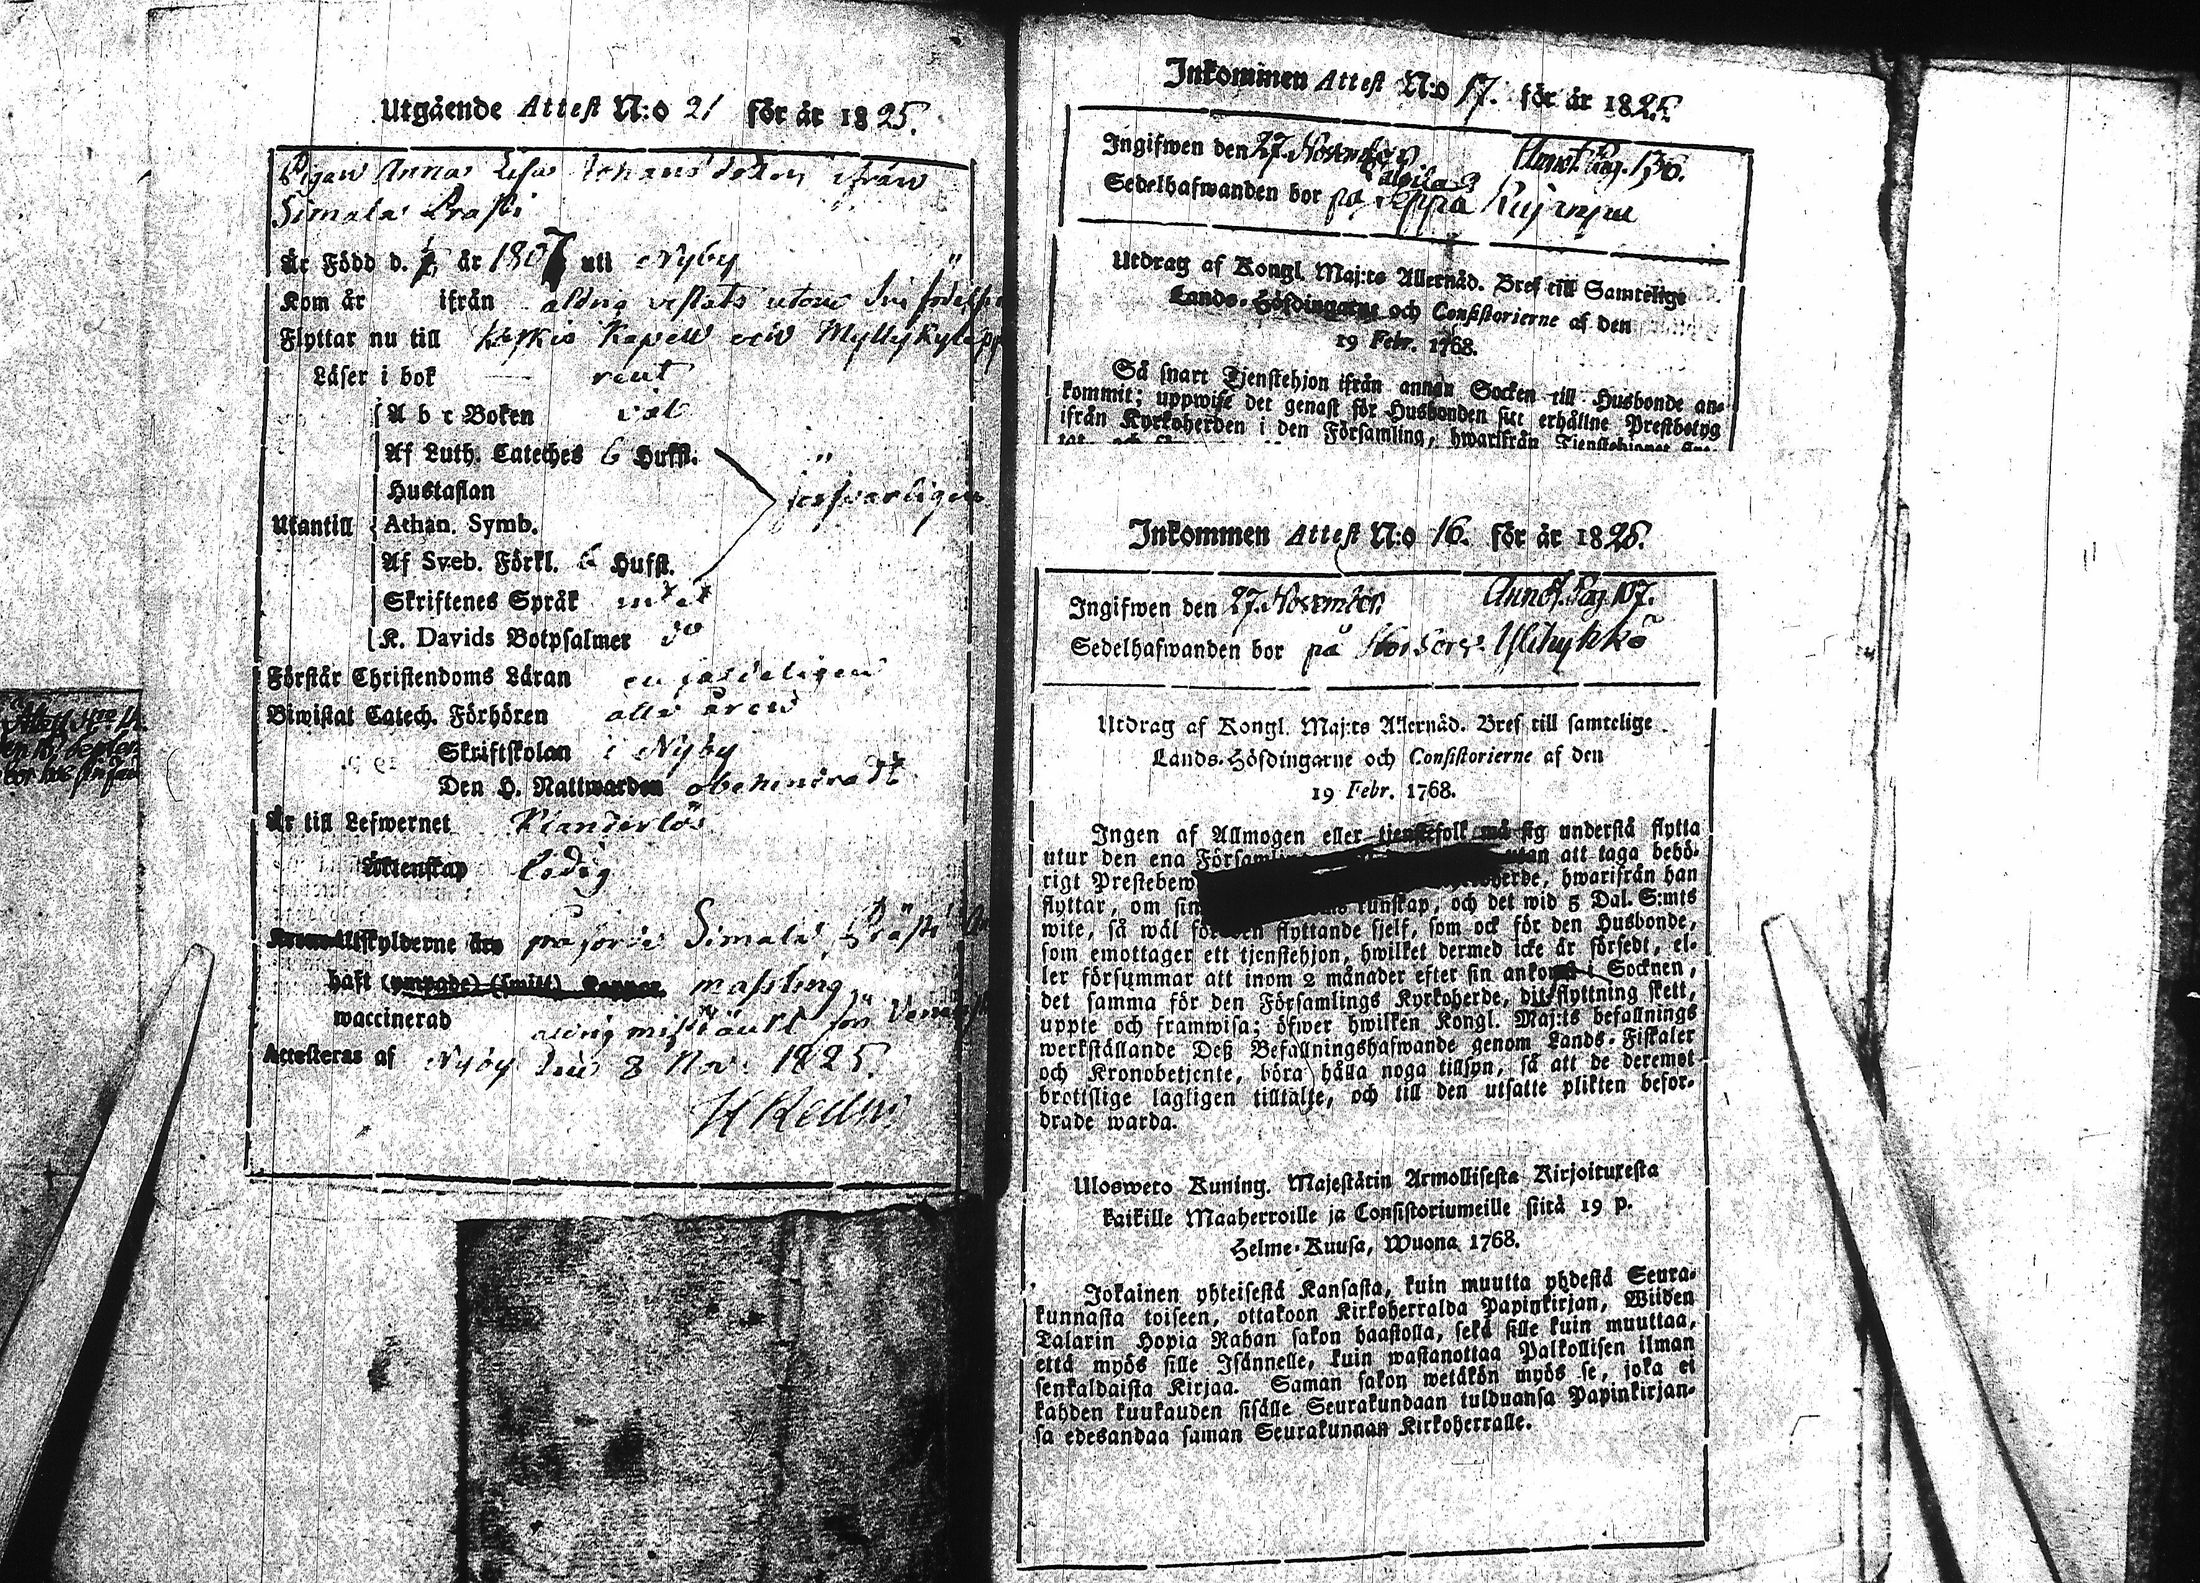 Utgående Attest N:o 21 för år 1825.
Pigan Anna Lisa Johans dotter ifrån
Simala Prasti
Är Född d. år 1807 uti Nyby
Kom år ifrån aldrig vistats utom sin
Flyttar nu till Keskis Kapell och
Läser i bok rent
Utantill
A b c Boken väl
Af Luth. Cateches 6 Hufst.
försvarligen
Hustaflan
Athan. Symb.
Af Sveb. Förkl. 6 Hufst.
Skriftenes Språk intet
K. Davids Botpsalmer do
Förstår Christendoms Läran enfaldeligen
Biwistat Catech. Förhören alla åren
Skriftskolan i Nyby
Den H. Nattwarden obehindradt
Är till Lefwernet Klanderlös
Äktenskap ledig
påförde Simala
haft (ympade) (smitt) Koppor massling
waccinerad
aldrig misstänkt för
Attesteras af Nyby den 8 Nov. 1825.
Inkommen Attest N:o 17. för år 1825.
Ingifwen den 27. November Annot. Pag. 136.
Sedelhafwanden bor på
Utdrag af Kongl. Maj:ts Allernåd. Bref till Samtelige
Lands-Höfdingarne och Consistorierne af den
19 Febr. 1768.
Så snart Tjenstehjon ifrån annan Socken till Husbonde an-
kommit; uppwise det genast för Husbonden sitt erhållne Prestbetyg
ifrån Kyrkoherden i den Församling, hwarifrån Tjenstehionet
Inkommen Attest N:o 16. för år 1825.
Ingifwen den 27. November Annot. Pag. 107.
Sedelhafwanden bor på Storsorv. Ylikykkö
Utdrag af Kongl. Maj:ts Allernåd. Bref till samtelige
Lands-Höfdingarne och Consistorierne af den
19 Febr. 1768.
Ingen af Allmogen eller tjenstefolk må sig understå flytta
utur den ena utan att taga behö-
rigt hwarifrån han
flyttar, om sin kunskap, och det wid 5 Dal. S:mts
wite, så wäl för den flyttande sjelf, som ock för den Husbonde,
som emottager ett tjenstehjon, hwilket dermed icke är försedt, el-
ler försummar att inom 2 månader efter sin ankomst i Socknen,
det samma för den Församlings Kyrkoherde, dit flyttning skett,
uppte och framwisa; öfwer hwilken Kongl. Maj:ts befallnings
werkställande Deß Befallningshafwande genom Lands-Fiskaler
och Kronobetjente, böra hålla noga tillsyn, så att de deremot
brotslige lagligen tilltalte, och till den utsatte plikten befor-
drade warda.
Ulosweto Kuning. Majestätin Armollisesta Kirjoituxesta
kaikille Maaherroille ja Consistoriumeille siitä 19 p.
Helme-Kuusa, Wuona 1768.
Jokainen yhteisestä Kansasta, kuin muutta yhdestä Seura-
kunnasta toiseen, ottakoon Kirkoherralda Papinkirjan, Wiiden
Talarin Hopia Rahan sakon haastolla, sekä sille kuin muuttaa,
että myös sille Isännelle, kuin wastanottaa Palkollisen ilman
senkaldaista Kirjaa. Saman sakon wetäkön myös se, joka ei
kahden kuukauden sisälle Seurakundaan tulduansa Papinkirjan-
sa edesandaa saman Seurakunnan Kirkoherralle.